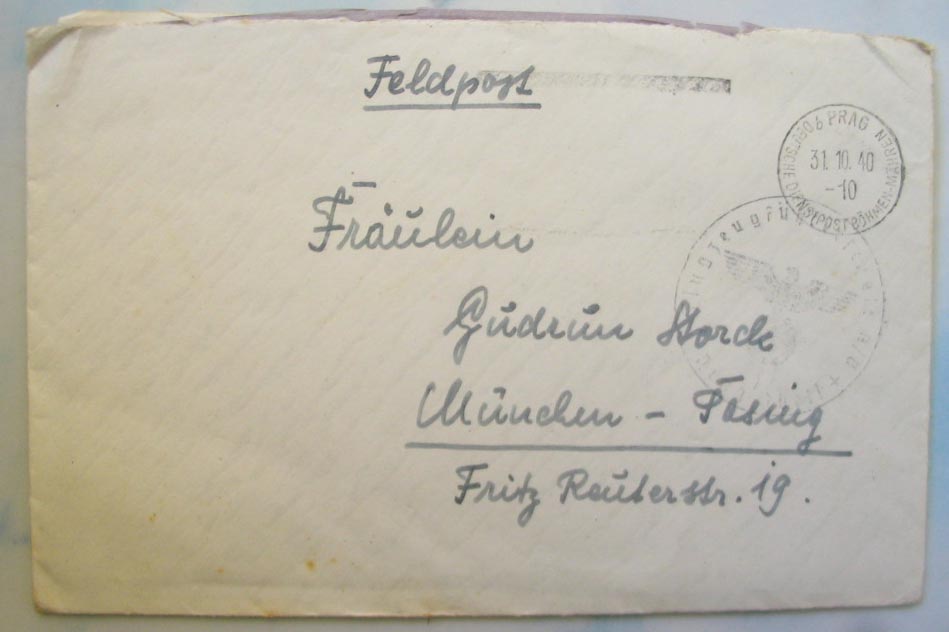 Feldpost
PRAG
31.10.40
-10
DEUTSCHE DIENSTPOST BÖHMEN-MÄHREN
Fräulein
Gudrun Storck
München - Pasing
Fritz Reuterstr. 19.